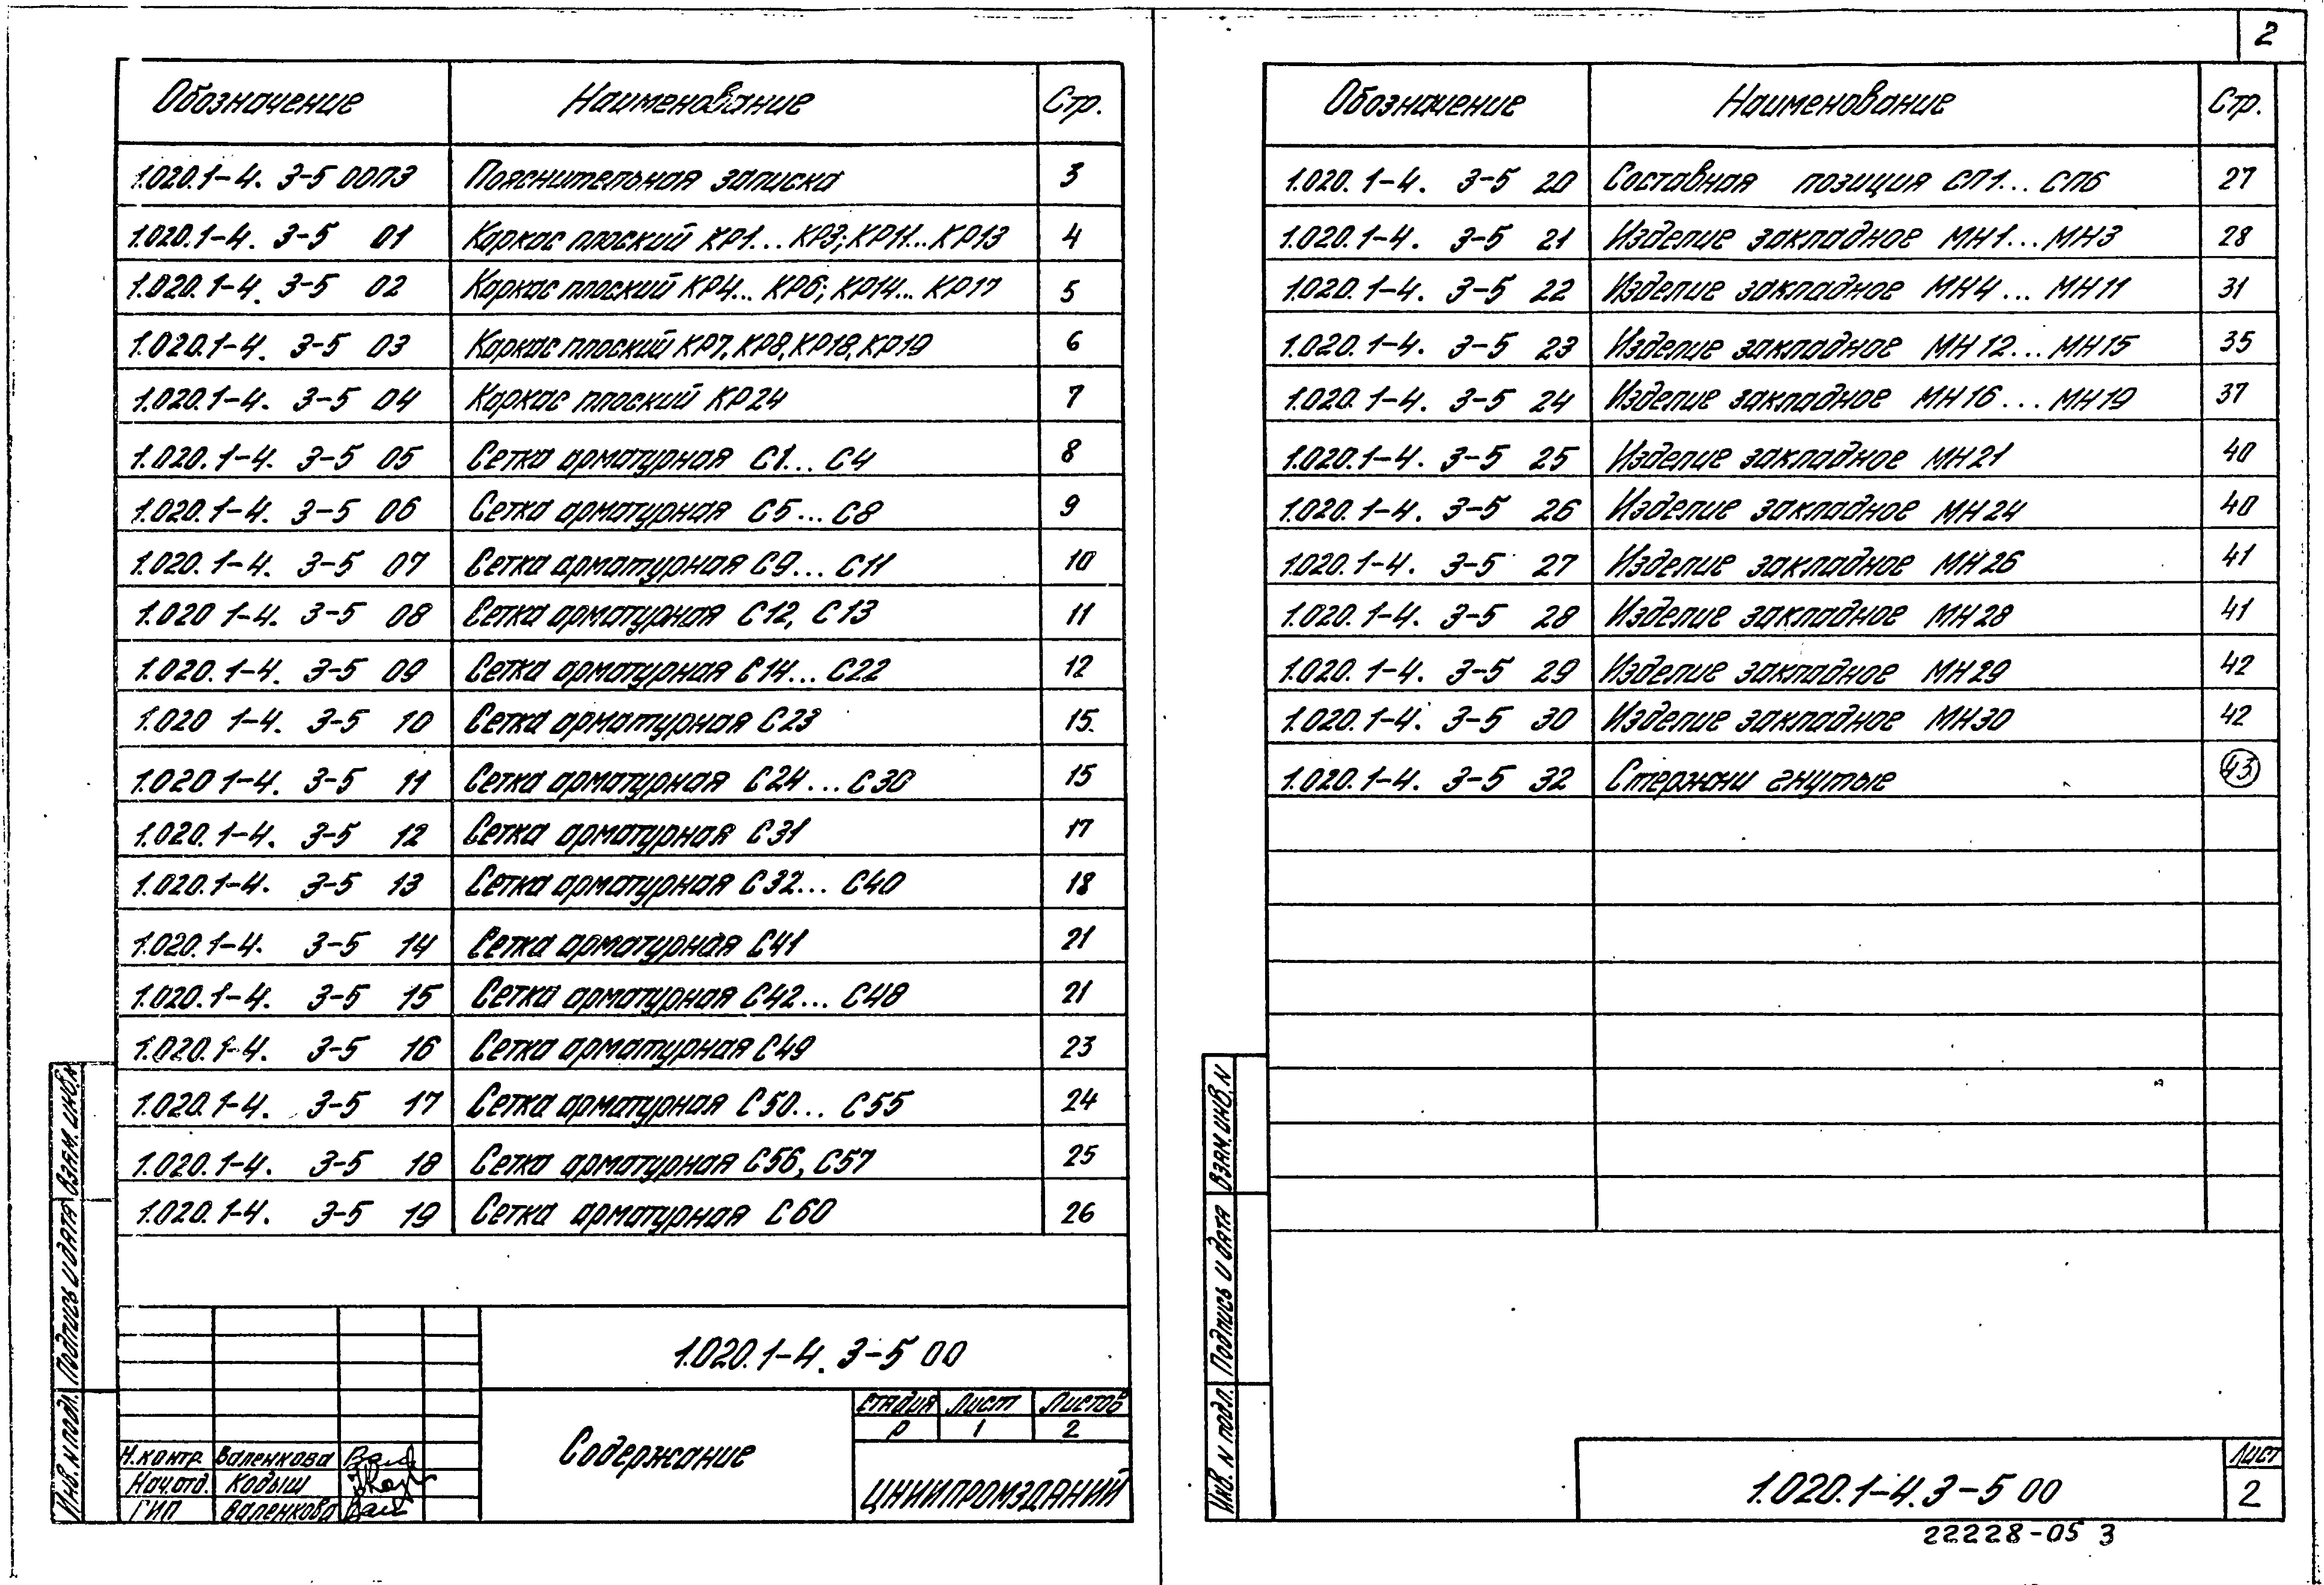 2
Обозначение Наименование Стр.
1.020.1-4. 3-5 00ПЗ Пояснительная записка 3
1.020.1-4. 3-5 01 Каркас плоский КР1... КР3; КР11... КР13 4
1.020.1-4. 3-5 02 Каркас плоский КР4... КР6; КР14... КР17 5
1.020.1-4. 3-5 03 Каркас плоский КР7, КР8, КР18, КР19 6
1.020.1-4. 3-5 04 Каркас плоский КР24 7
1.020.1-4. 3-5 05 Сетка арматурная С1... С4 8
1.020.1-4. 3-5 06 Сетка арматурная С5... С8 9
1.020.1-4. 3-5 07 Сетка арматурная С9... С11 10
1.020 1-4. 3-5 08 Сетка арматурная С12, С13 11
1.020.1-4. 3-5 09 Сетка арматурная С14... С22 12
1.020 1-4. 3-5 10 Сетка арматурная С23 15
1.020 1-4. 3-5 11 Сетка арматурная С24... С30 15
1.020.1-4. 3-5 12 Сетка арматурная С31 17
1.020.1-4. 3-5 13 Сетка арматурная С32... С40 18
1.020.1-4. 3-5 14 Сетка арматурная С41 21
1.020.1-4. 3-5 15 Сетка арматурная С42... С48 21
1.020.1-4. 3-5 16 Сетка арматурная С49 23
1.020.1-4. 3-5 17 Сетка арматурная С50... С55 24
1.020.1-4. 3-5 18 Сетка арматурная С56, С57 25
1.020.1-4. 3-5 19 Сетка арматурная С60 26
1.020.1-4. 3-5 00
Содержание
Стадия Лист Листов
Р 1 2
ЦНИИПРОМЗДАНИЙ
Н.контр. Валенкова
Нач.отд. Кодыш
ГИП Валенкова
Инв. N подл. Подпись и дата Взам. инв. N
Обозначение Наименование Стр.
1.020.1-4. 3-5 20 Составная позиция СП1... СП6 27
1.020.1-4. 3-5 21 Изделие закладное МН1... МН3 28
1.020.1-4. 3-5 22 Изделие закладное МН4... МН11 31
1.020.1-4. 3-5 23 Изделие закладное МН12... МН15 35
1.020.1-4. 3-5 24 Изделие закладное МН16... МН19 37
1.020.1-4. 3-5 25 Изделие закладное МН21 40
1.020.1-4. 3-5 26 Изделие закладное МН24 40
1.020.1-4. 3-5 27 Изделие закладное МН26 41
1.020.1-4. 3-5 28 Изделие закладное МН28 41
1.020.1-4. 3-5 29 Изделие закладное МН29 42
1.020.1-4. 3-5 30 Изделие закладное МН30 42
1.020.1-4. 3-5 32 Стержни гнутые 43
Инв. N подл. Подпись и дата Взам. инв. N
1.020.1-4. 3-5 00
Лист
2
22228-05 3